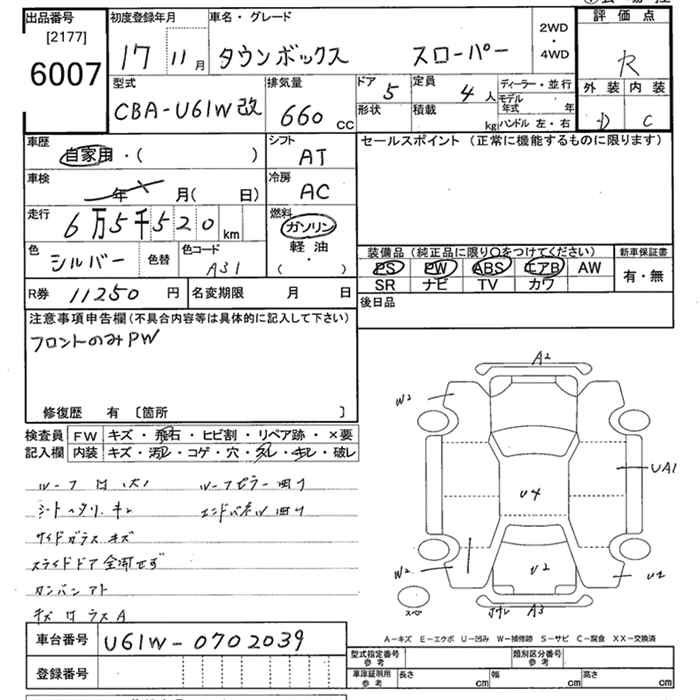 出品番号 初度登録年月 車名・グレード 2WD ・ 4WD 評価点
[2177]
6007 17 11月 タウンボックス スローパー R
型式 排気量 ドア 定員 ディーラー・並行 外装 内装
CBA-U61W改 660 CC 5 4人 モデル年式 年
形状 積載 kg ハンドル 左・右 D C
車歴 自家用・( ) シフト AT セールスポイント (正常に機能するものに限ります)
車検 年 月( 日) 冷房 AC
走行 6万5千520km 燃料 ガソリン
軽油
・
( )
色 シルバー 色替 色コード A31
装備品 (純正品に限り○をつけてください) 新車保証書
PS PW ABS エアB AW 有・無
SR ナビ TV カワ
R券 11250円 名変期限 月 日 後日品
注意事項申告欄(不具合内容等は具体的に記入して下さい)
フロントのみPW
修復歴 有 〔箇所 〕
検査員 FW キズ・飛石・ヒビ割・リペア跡・×要
記入欄 内装 キズ・汚レ・コゲ・穴・スレ・キレ・破レ
シートヘタリ、キレ エンドパネル曲り
サイドガラスキズ
スライドドア全開せず
A2
W2
UA1
U4
W2
U2
U2
A3
スペア
A-キズ E-エクボ U-凹み W-補修跡 S-サビ C-腐食 XX-交換済
車台番号 U61W-0702039
型式指定番号 参考 類別区分番号 参考
登録番号 車庫証明用 参考 長さ cm 幅 cm 高さ cm